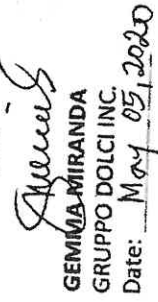 GEMMA MIRANDA
GRUPPO DOLCI INC.
Date: May 05, 2020